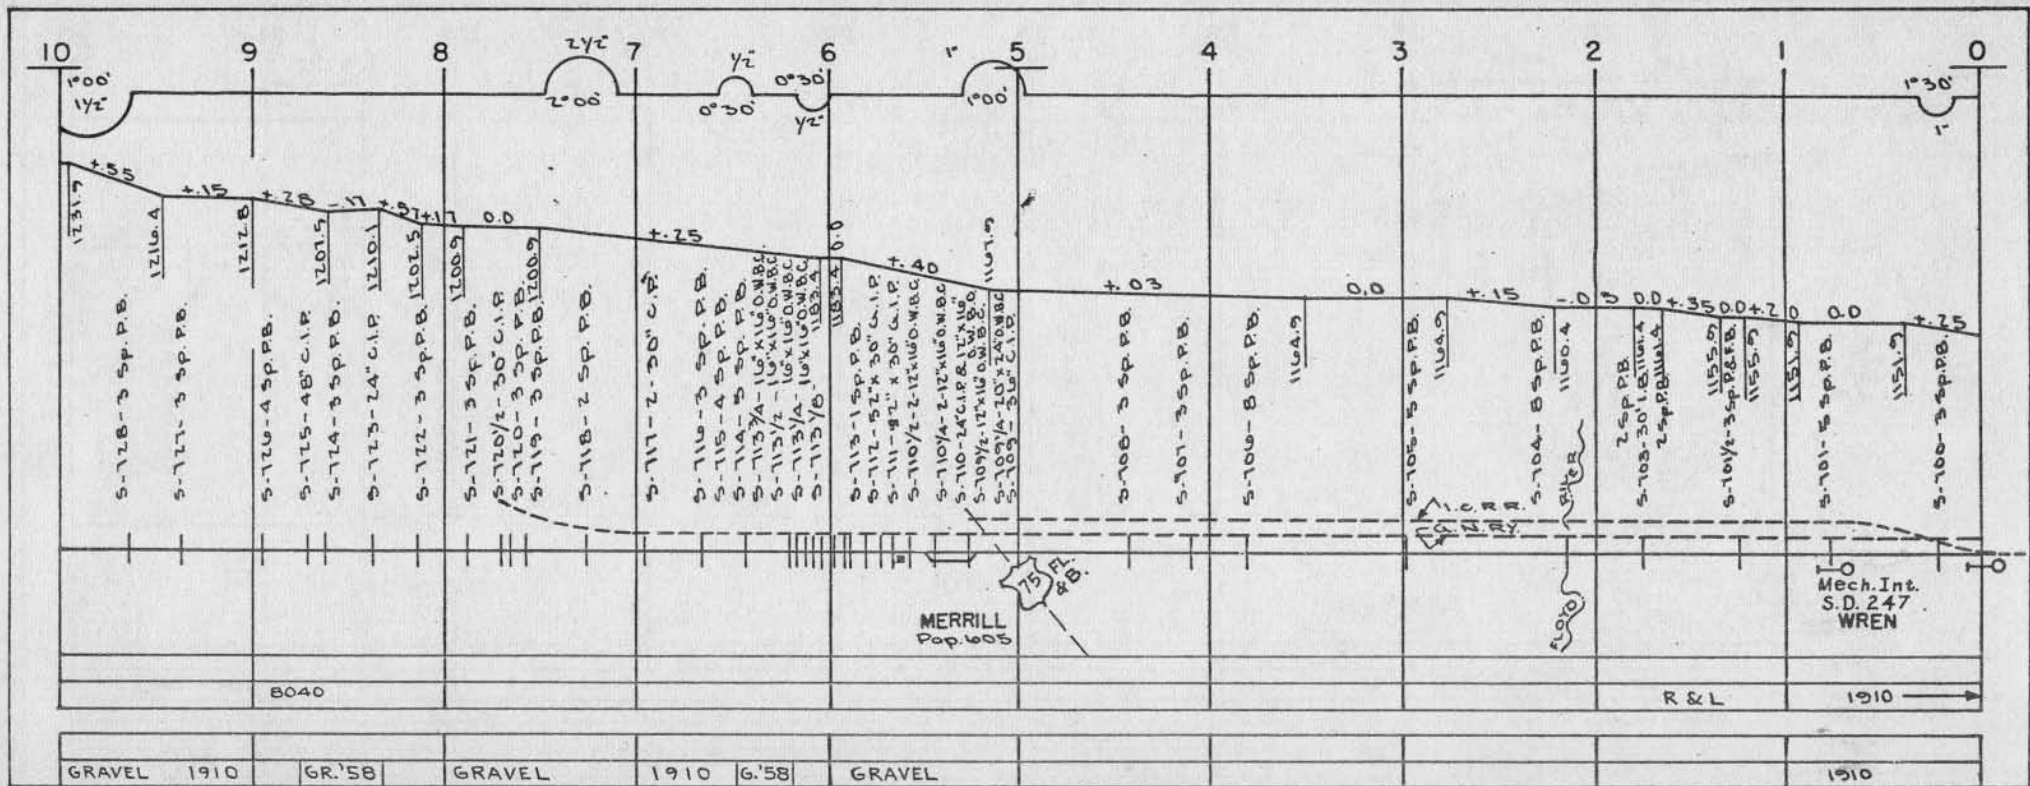 10 9 8 7 6 5 4 3 2 1 0
1°00' 1½" 2½" 2°00' ½" 0°30' 0°30' ½" 1" 1°00' 1°30' 1"
+.55 +.15 +.28 -.17 +.57 +.17 0.0 +.25 0.0 +.40 +.03 0.0 +.15 0.0 +.35 0.0 +.20 0.0 +.25
1231.9
1216.4
1212.8
1207.5
1210.1
1202.5
1200.9
1200.9
1183.4
1183.4
1167.9
1164.9
1164.9
1160.4
1161.4
1161.4
1155.9
1155.9
1151.9
1151.9
S-728-3 Sp. P.B.
S-727-3 Sp. P.B.
S-726-4 Sp. P.B.
S-725-48" C.I.P.
S-724-3 Sp. P.B.
S-723-24" C.I.P.
S-722-3 Sp. P.B.
S-721-3 Sp. P.B.
S-720½-30" C.I.P.
S-720-3 Sp. P.B.
S-719-3 Sp. P.B.
S-718-2 Sp. P.B.
S-717-2-30" C.P.
S-716-3 Sp. P.B.
S-715-4 Sp. P.B.
S-714-5 Sp. P.B.
S-713¾-16"x16" O.W.B.C.
S-713½-16"x16" O.W.B.C.
S-713¼-16"x16" O.W.B.C.
S-713⅛-16"x16" O.W.B.C.
S-713-1 Sp. P.B.
S-712-52"x30" C.I.P.
S-711-82"x30" C.I.P.
S-710½-2-12"x16" O.W.B.C.
S-710¼-2-12"x16" O.W.B.C.
S-710-24" C.I.P. & 12"x16" O.W.B.O.
S-709½-12"x16" O.W.B.C.
S-709¼-20"x24" W.B.C.
S-709-36" C.I.P.
S-708-3 Sp. P.B.
S-707-3 Sp. P.B.
S-706-8 Sp. P.B.
S-705-5 Sp. P.B.
S-704-8 Sp. P.B.
2 Sp. P.B.
S-703-30" I.P.
2 Sp. P.B.
S-701½-3 Sp. P.& F.B.
S-701-5 Sp. P.B.
S-700-3 Sp. P.B.
I.C.R.R.
G.N.RY.
FLOYD RIVER
75 FL. & B.
MERRILL
Pop. 605
Mech. Int.
S.D. 247
WREN
8040 R & L 1910
GRAVEL 1910 GR.'58 GRAVEL 1910 G.'58 GRAVEL 1910